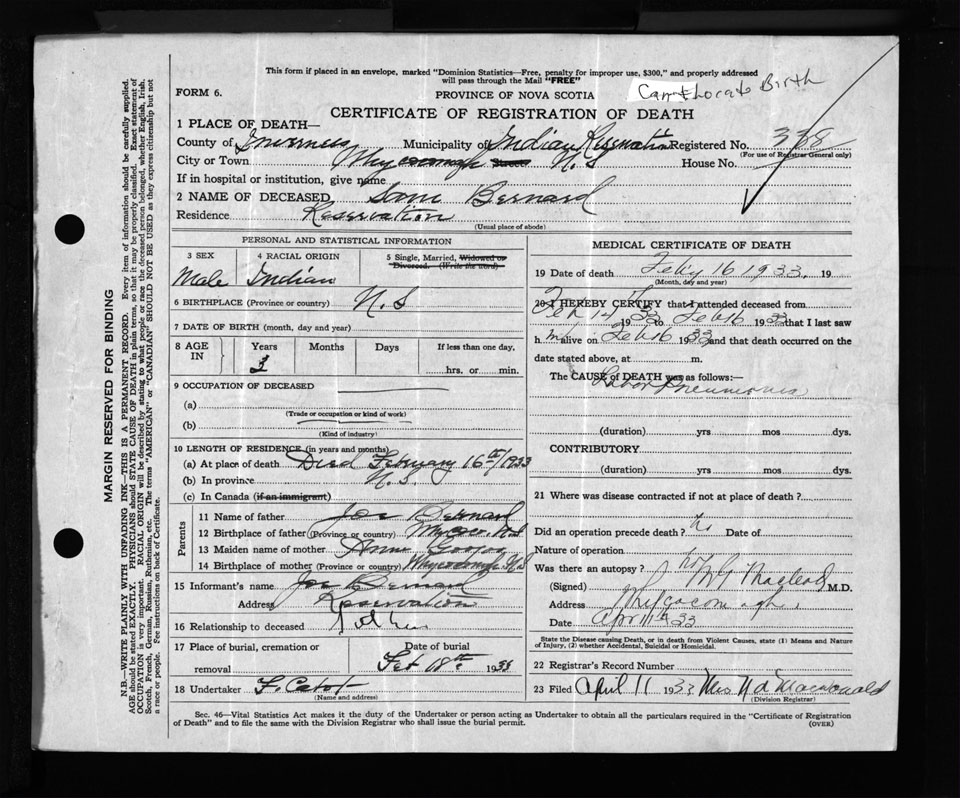 This form if placed in an envelope, marked "Dominion Statistics—Free, penalty for improper use, $300," and properly addressed
will pass through the Mail "FREE"
FORM 6.
PROVINCE OF NOVA SCOTIA
Birth
CERTIFICATE OF REGISTRATION OF DEATH
1 PLACE OF DEATH—
County of Inverness Municipality of Indian Reservation Registered No. 338
(For use of Registrar General only)
City or Town Street N. S House No.
If in hospital or institution, give name
2 NAME OF DECEASED Sam Bernard
Residence Reservation
(Usual place of abode)
PERSONAL AND STATISTICAL INFORMATION
3 SEX 4 RACIAL ORIGIN 5 Single, Married, Widowed or
Divorced. (Write the word)
Male Indian
6 BIRTHPLACE (Province or country) N. S
7 DATE OF BIRTH (month, day and year)
8 AGE IN Years Months Days If less than one day.
3 hrs. or min.
9 OCCUPATION OF DECEASED
(a)
(Trade or occupation or kind of work)
(b)
(Kind of industry)
10 LENGTH OF RESIDENCE (in years and months)
(a) At place of death Died February 16th/1933
(b) In province N. S.
(c) In Canada (if an immigrant)
Parents
11 Name of father Joe Bernard
12 Birthplace of father (Province or country) N.S
13 Maiden name of mother Annie
14 Birthplace of mother (Province or country) N.S
15 Informant's name Joe Bernard
Address Reservation
16 Relationship to deceased Father
17 Place of burial, cremation or Date of burial
removal Feb 18th 1933
18 Undertaker
(Name and address)
MEDICAL CERTIFICATE OF DEATH
19 Date of death Feby 16 1933. 19
(Month, day and year)
20 I HEREBY CERTIFY that I attended deceased from
Feb 14 1933 to Feb 16 1933 that I last saw
h im alive on Feb 16 1933 and that death occurred on the
date stated above, at m.
The CAUSE OF DEATH was as follows:—
Lobar Pneumonia
(duration) yrs mos dys.
CONTRIBUTORY
(duration) yrs mos dys.
21 Where was disease contracted if not at place of death?
Did an operation precede death? No Date of
Nature of operation
Was there an autopsy? no
(Signed) Macleod M.D.
Address Whycocomagh
Date April 11 33
State the Disease causing Death, or in death from Violent Causes, state (1) Means and Nature
of Injury, (2) whether Accidental, Suicidal or Homicidal.
22 Registrar's Record Number
23 Filed April 11 1933 Mrs Macdonald
(Division Registrar)
Sec. 46—Vital Statistics Act makes it the duty of the Undertaker or person acting as Undertaker to obtain all the particulars required in the "Certificate of Registration
of Death" and to file the same with the Division Registrar who shall issue the burial permit. (OVER)
MARGIN RESERVED FOR BINDING
N.B.—WRITE PLAINLY WITH UNFADING INK—THIS IS A PERMANENT RECORD. Every item of information should be carefully supplied.
AGE should be stated EXACTLY. PHYSICIANS should STATE CAUSE OF DEATH in plain terms, so that it may be properly classified. Exact statement of
OCCUPATION is very important. RACIAL ORIGIN will be described by stating to what people or race the deceased person belonged, whether English, Irish,
Scotch, French, German, Russian, Ruthenian, etc. The terms "AMERICAN" or "CANADIAN" SHOULD NOT BE USED as they express citizenship but not
a race or people. See instructions on back of Certificate.